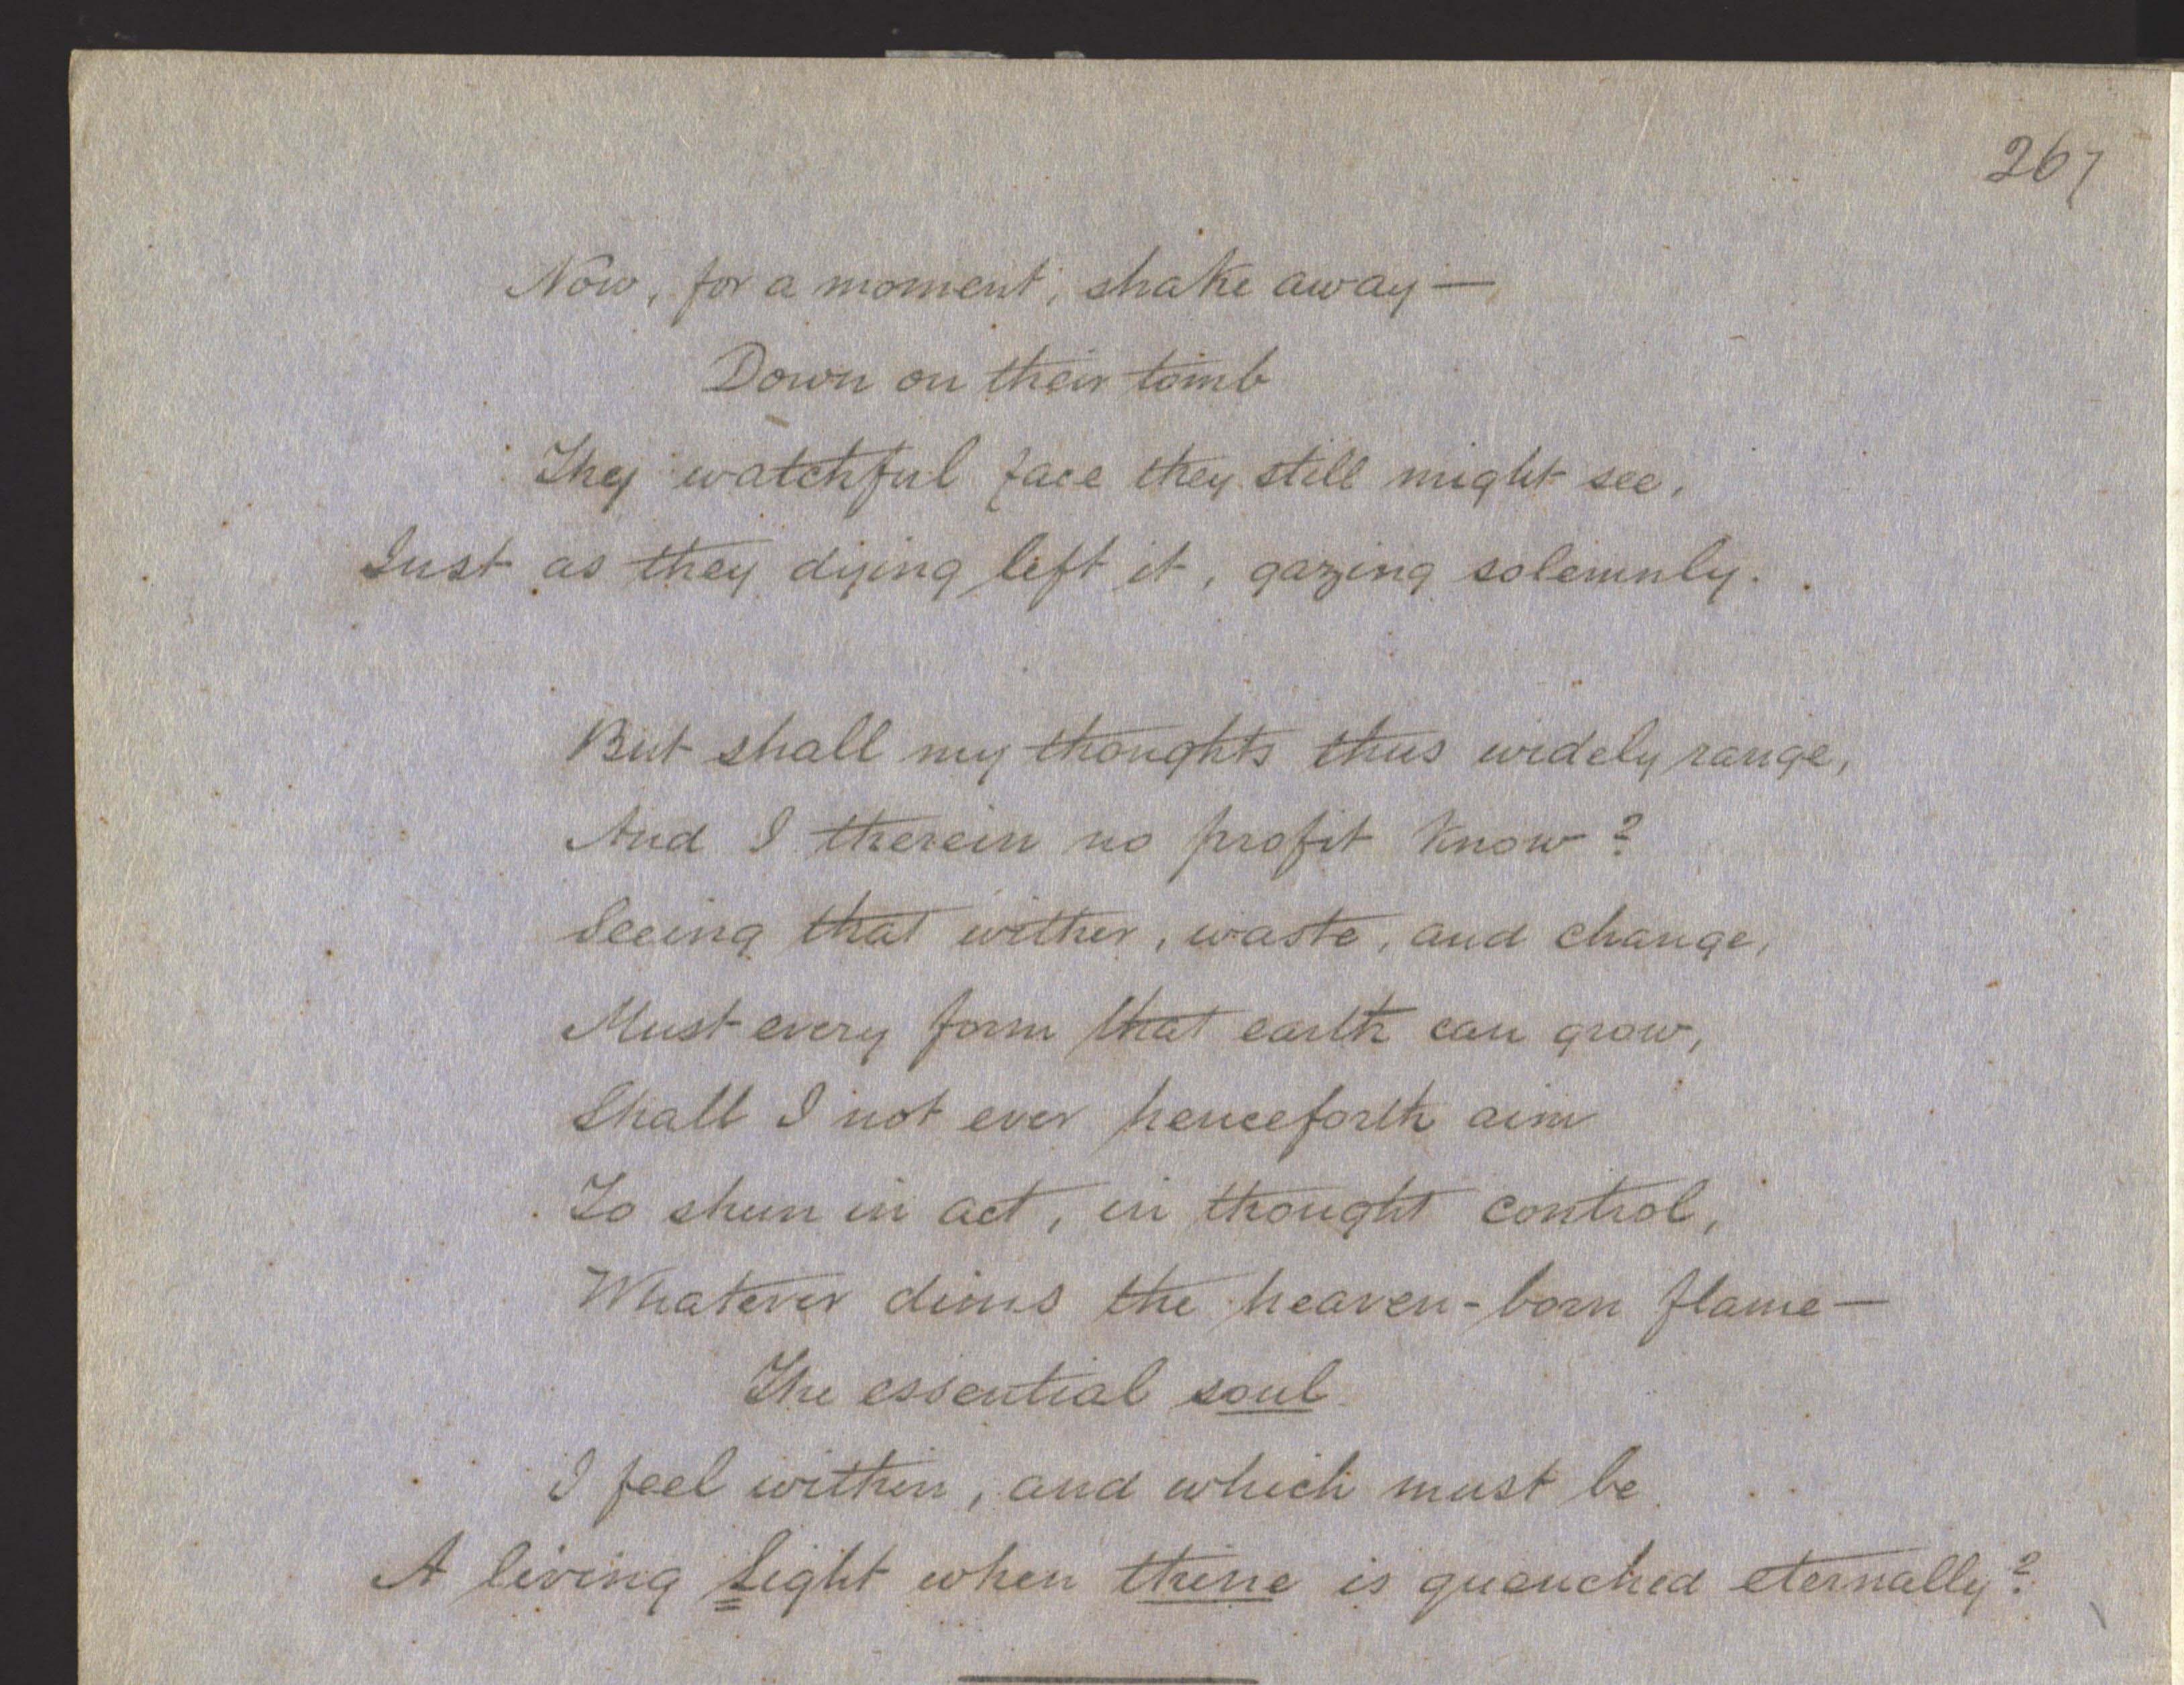 267
Now, for a moment, shake away—
Down on their tomb
They watchful face they still might see,
Just as they dying left it, gazing solemnly.
But shall my thoughts thus widely range,
And I therein no profit know?
Seeing that wither, waste, and change,
Must every form that earth can grow,
Shall I not ever henceforth aim
To shun in act, in thought control,
Whatever dims the heaven-born flame—
The essential soul
I feel within, and which must be
A living Light when thine is quenched eternally?